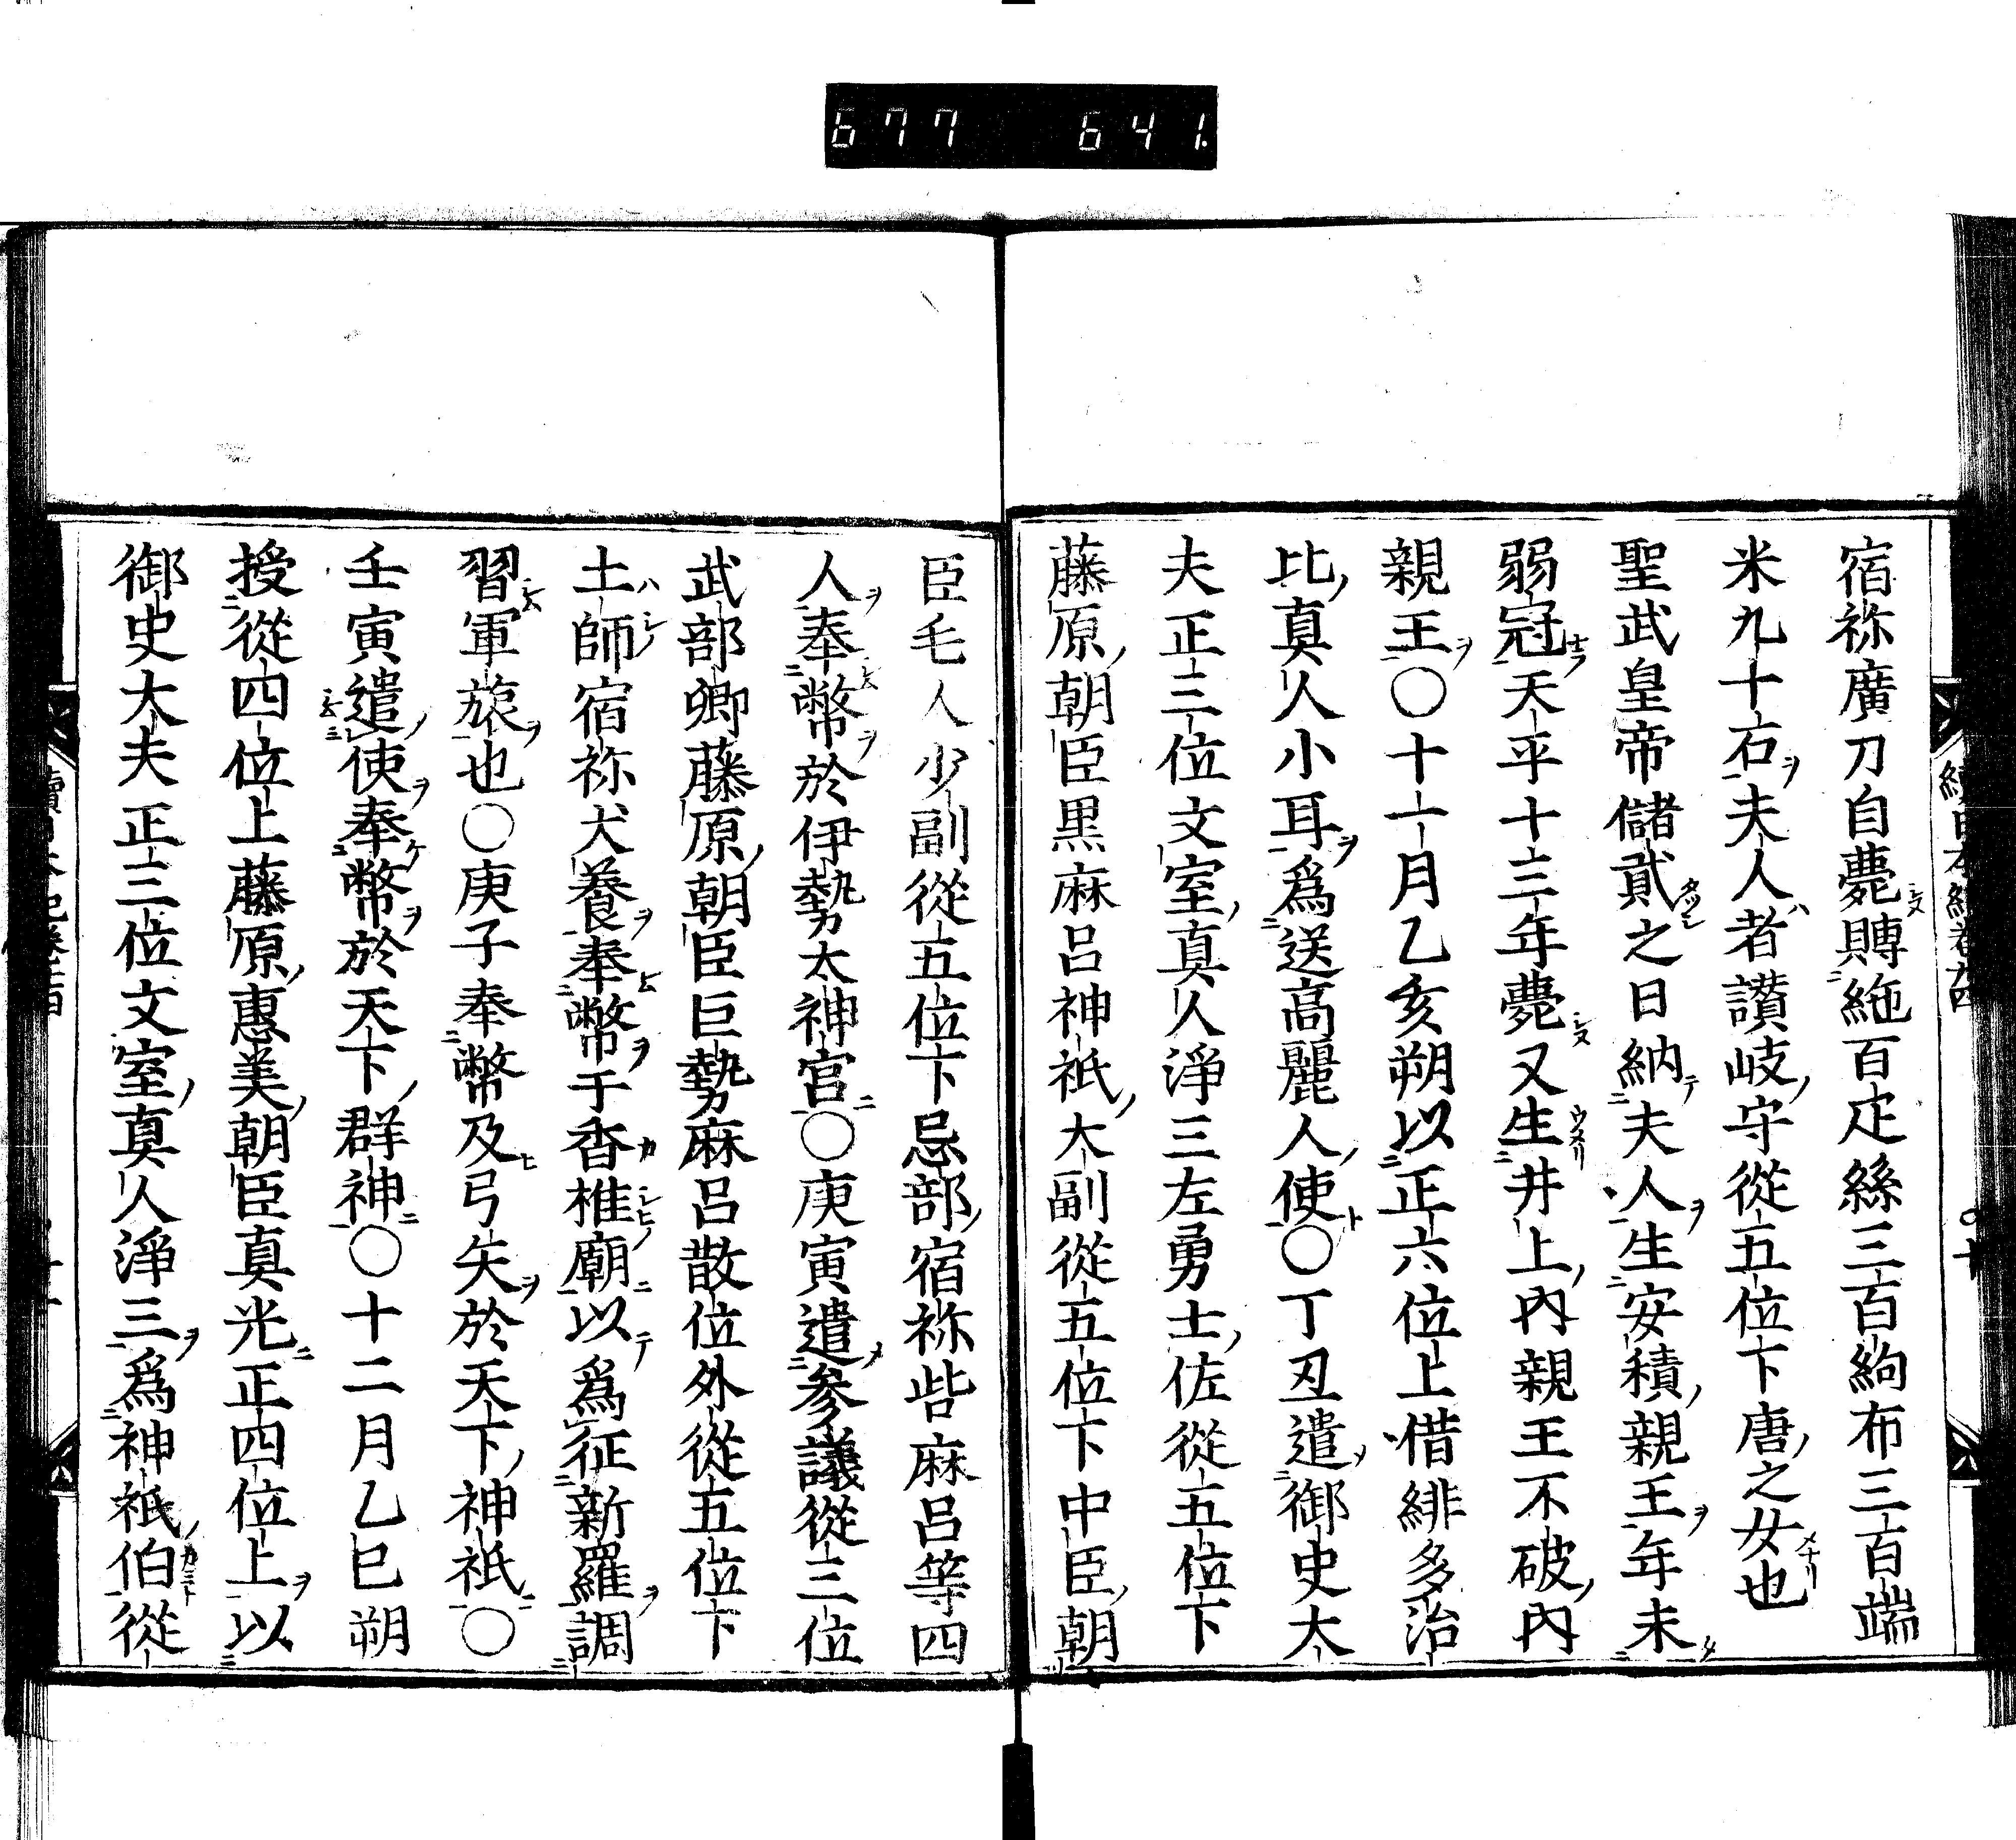 677 641.
宿祢廣刀自薨賻絁百疋絲三百絇布三百端
米九十石夫人者讃岐守從五位下唐之女也
聖武皇帝儲貳之日納夫人生安積親王年未
弱冠天平十三年薨又生井上内親王不破内
親王〇十一月乙亥朔以正六位上借緋多治
比真人小耳爲送高麗人使〇丁丑遣御史大
夫正三位文室真人淨三左勇士佐從五位下
藤原朝臣黒麻呂神祇大副從五位下中臣朝
臣毛人少副從五位下忌部宿祢呰麻呂等四
人奉幣於伊勢太神宮〇庚寅遣參議從三位
武部卿藤原朝臣巨勢麻呂散位外從五位下
土師宿祢犬養奉幣于香椎廟以爲征新羅調
習軍旅也〇庚子奉幣及弓矢於天下神祇〇
壬寅遣使奉幣於天下群神〇十二月乙巳朔
授從四位上藤原惠美朝臣真光正四位上以
御史大夫正三位文室真人淨三爲神祇伯從